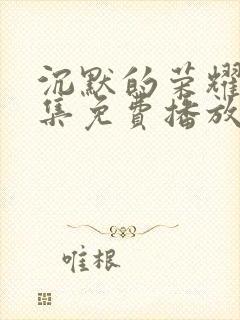 沉默的荣耀
集免费播放
唯根